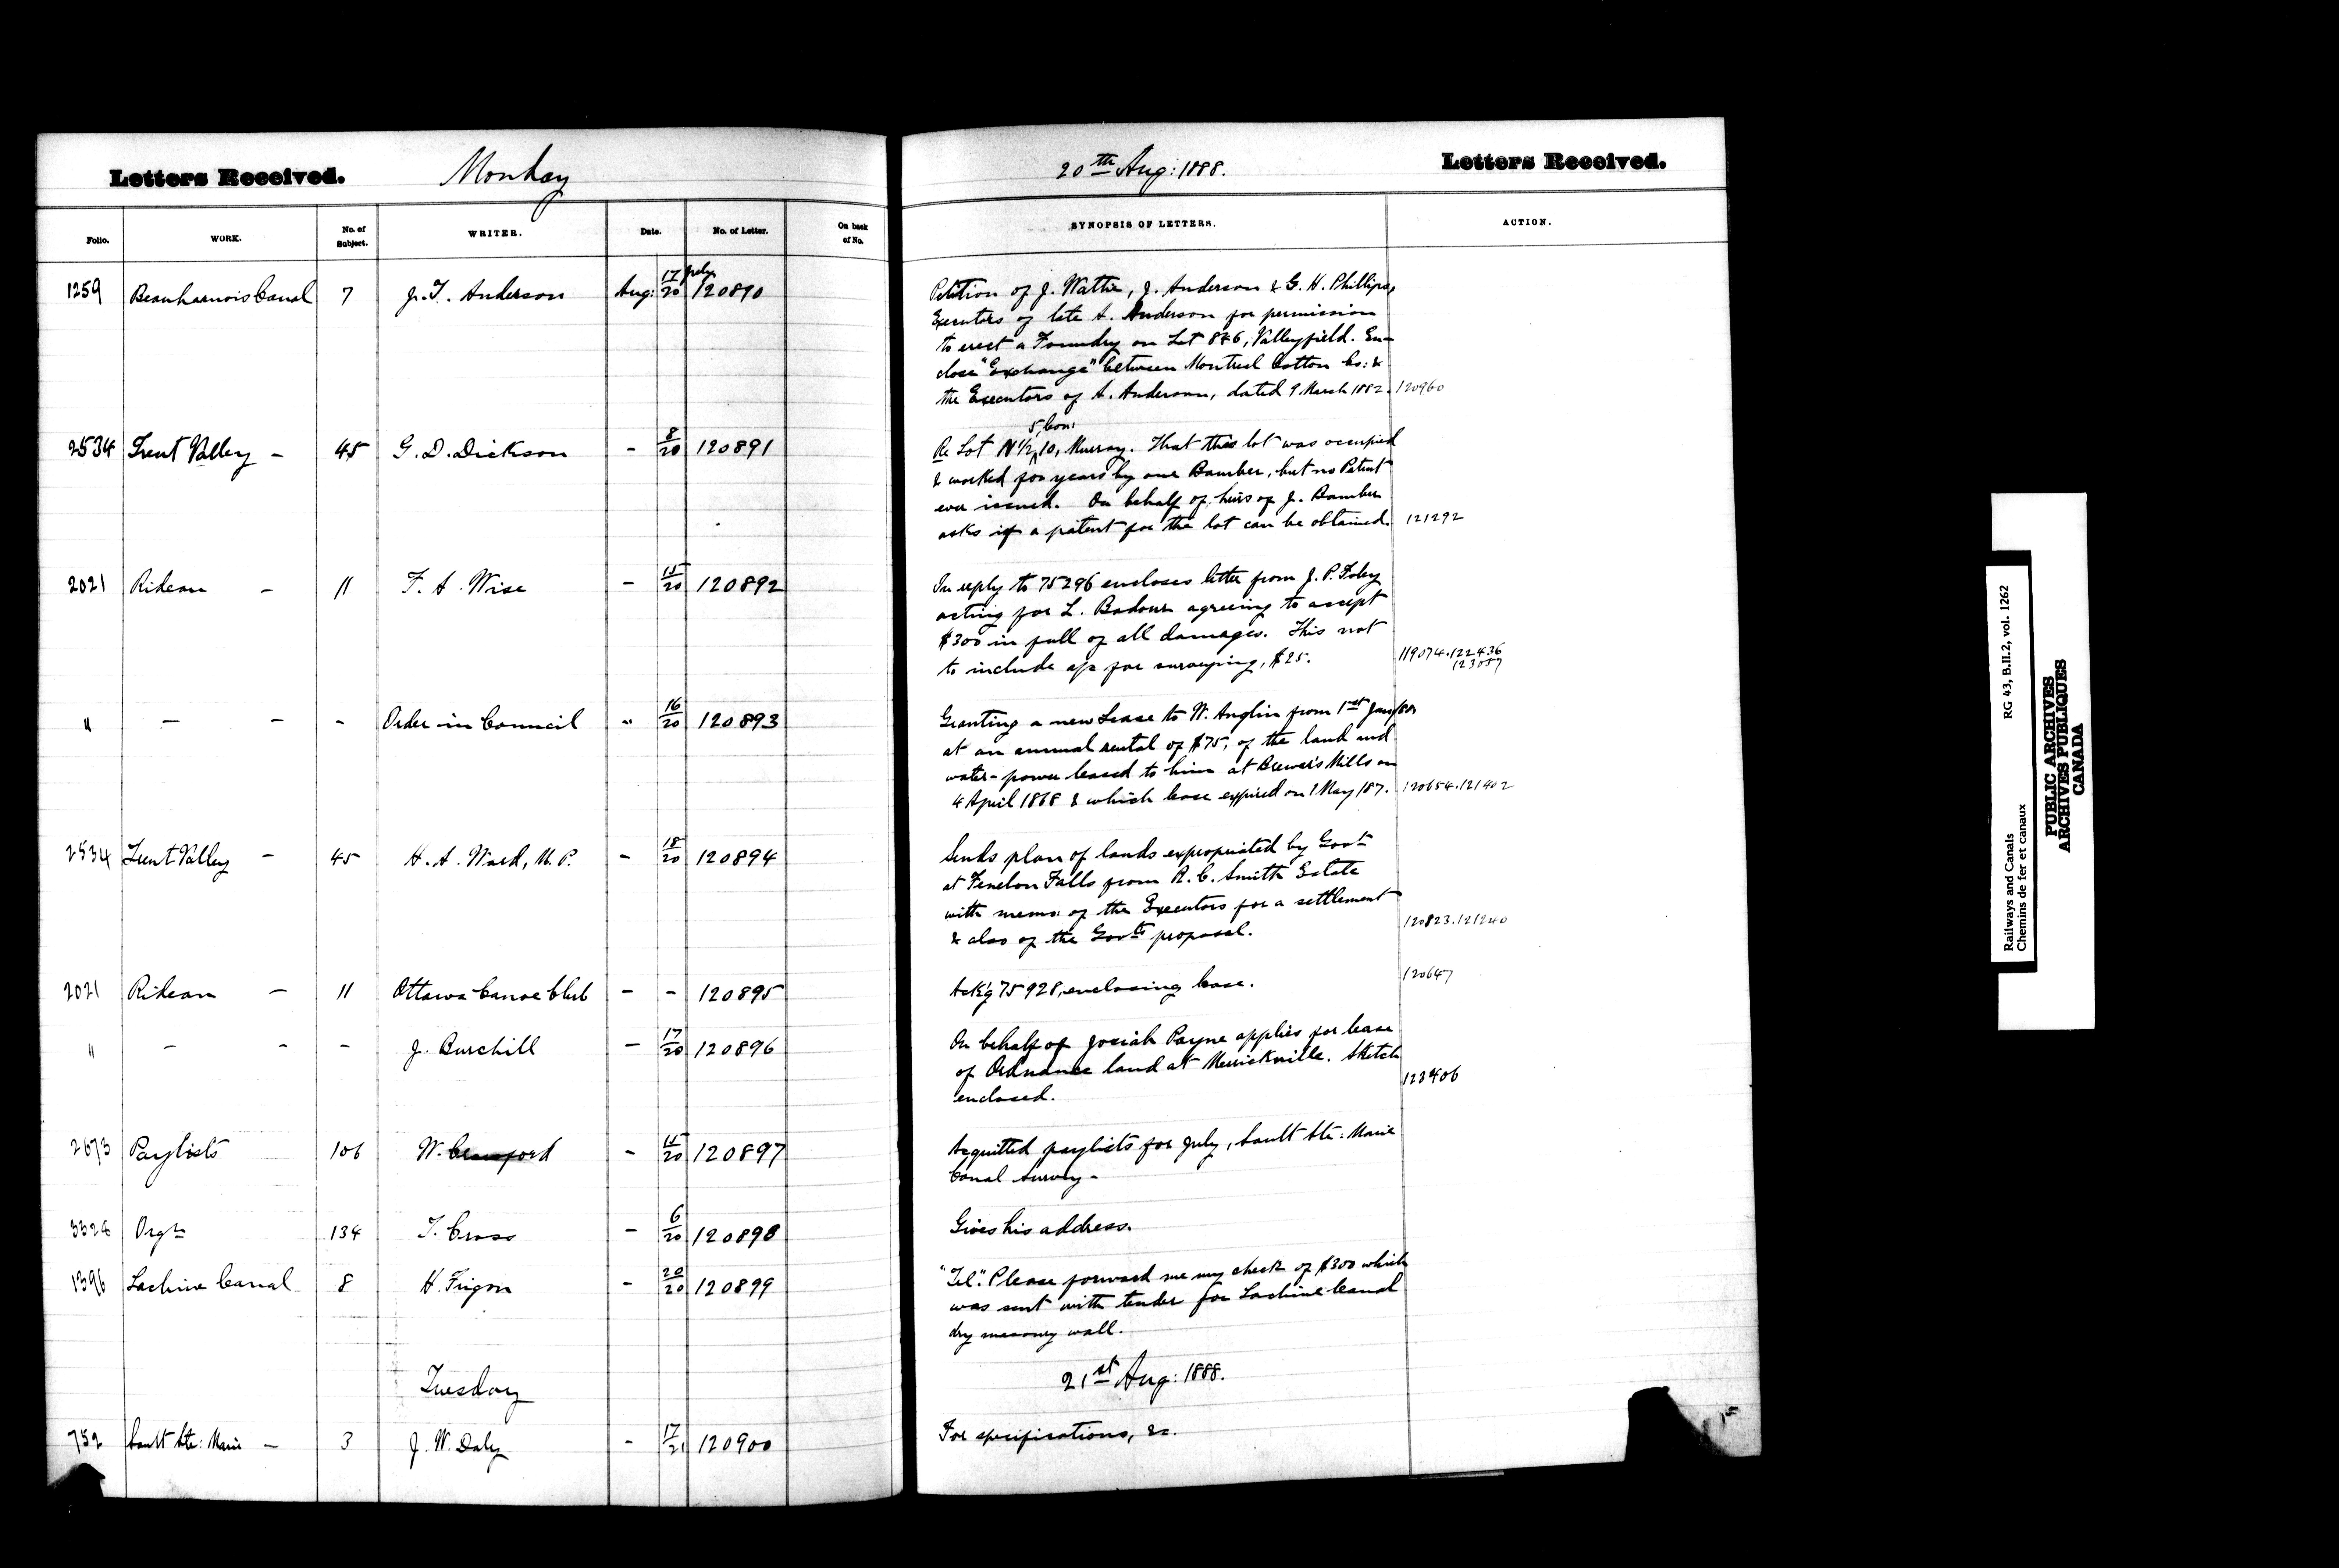 Letters Received. Monday
20th Aug: 1888. Letters Received.
Folio. WORK. No. of Subject. WRITER. Date. No. of Letter. On back of No. SYNOPSIS OF LETTERS. ACTION.
1259 Beauharnois Canal 7 J. T. Anderson Aug: 17 July/20 120890
Petition of J. Wattie, J. Anderson & G. H. Phillips,
Executors of late A. Anderson for permission
to erect a Foundry on Lot 846, Valleyfield. En-
close "Exchange" between Montreal Cotton Co: &
the Executors of A. Anderson, dated 9 March 1882. 120960
2534 Trent Valley - 45 G. D. Dickson - 8/20 120891
5, Con:
Re Lot N 1/2, 10, Murray. That this lot was occupied
& worked for years by one Bamber, but no Patent
ever issued. On behalf of heirs of J. Bamber
asks if a patent for the lot can be obtained. 121292
2021 Rideau - 11 F. A. Wise - 15/20 120892
In reply to 75296 encloses letter from J. P. Foley
acting for L. Badour agreeing to accept
$300 in full of all damages. This not
to include a/c for surveying, $25. 119074.122436
123057
" - - - Order in Council " 16/20 120893
Granting a new Lease to W. Anglin from 1st Jany
at an annual rental of $75, of the land and
water-power leased to him at Brewer's Mills on
4 April 1868 & which lease expired on 1 May 187. 120654.121402
2534 Trent Valley - 45 H. A. Ward, M. P. - 18/20 120894
Sends plan of lands expropriated by Govt
at Fenelon Falls from R. C. Smith Estate
with memo: of the Executors for a settlement
& also of the Govts proposal. 120823.121240
2021 Rideau - 11 Ottawa Canoe Club - - 120895
Ack'g 75928, enclosing lease. 120647
" - - - J. Burchill - 17/20 120896
On behalf of Josiah Payne applies for lease
of Ordnance land at Merrickville. Sketch
enclosed. 123406
2673 Paylists 106 W. Crawford - 15/20 120897
Acquitted paylists for July, Sault Ste: Marie
Canal Survey -
3328 Orgn 134 T. Cross - 6/20 120898
Gives his address.
1396 Lachine Canal 8 H. Frigon - 20/20 120899
"Tel". Please forward me my check of $300 which
was sent with tender for Lachine Canal
dry masonry wall.
Tuesday 21st Aug: 1888.
752 Sault Ste: Marie - 3 J. W. Daly - 17/21 120900
For specifications, &c.
Railways and Canals RG 43, B.II.2, vol. 1262
Chemins de fer et canaux
PUBLIC ARCHIVES
ARCHIVES PUBLIQUES
CANADA